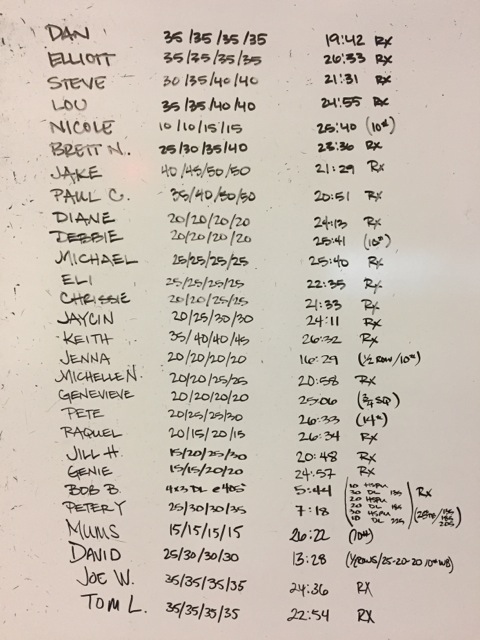 DAN 35/35/35/35 19:42 RX
ELLIOTT 35/35/35/35 26:33 RX
STEVE 30/35/40/40 21:31 RX
LOU 35/35/40/40 24:55 RX
NICOLE 10/10/15/15 25:40 (10#)
BRETT N. 25/30/35/40 23:36 RX
JAKE 40/45/50/50 21:29 RX
PAUL C. 35/40/50/50 20:51 RX
DIANE 20/20/20/20 24:13 RX
DEBBIE 20/20/20/20 25:41 (10#)
MICHAEL 25/25/25/25 25:40 RX
ELI 25/25/25/25 22:35 RX
CHRISSIE 20/20/25/25 21:33 RX
JAYCIN 20/25/30/30 24:11 RX
KEITH 35/40/40/45 26:32 RX
JENNA 20/20/20/20 16:29 (1/2 ROW/10#)
MICHELLE N. 20/20/25/25 20:58 RX
GENEVIEVE 20/20/20/20 25:06 (3/4 SQ)
PETE 20/25/25/30 26:33 (14#)
RAQUEL 20/15/20/15 26:34 RX
JILL H. 15/20/25/30 20:48 RX
GENIE 15/15/20/20 24:57 RX
BOB B. 4x3 DL @ 405# 5:44 RX
PETER Y 25/30/30/35 7:18
MUMS 15/15/15/15 26:22 (10#)
DAVID 25/30/30/30 13:28 (1/2 ROWS/25-20-20 10# WB)
JOE W. 35/35/35/35 24:36 RX
TOM L. 35/35/35/35 22:54 RX